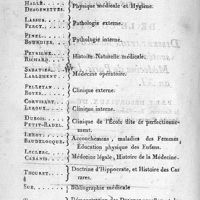 HALLÉ,
DESGENETTES. Physique médicale et Hygiène.
LASSUS,
PERCY. Pathologie externe.
PINEL,
BOURDIER. Pathologie interne.
PEYRILHE,
RICHARD. Histoire Naturelle médicale.
SABATIER,
LALLEMENT. Médecine opératoire.
PELLETAN
BOYER. Clinique externe.
CORVISART,
LEROUX. Clinique interne.
DUBOIS,
PETIT-RADEL. Clinique de l'École dite de perfectionne-
ment.
LEROY,
BAUDELOCQUE. Accouchemens, maladies des Femmes,
Éducation physique des Enfans.
LECLERC,
CABANIS. Médecine légale, Histoire de la Médecine.
THOURET. Doctrine d'Hippocrate, et Histoire des Cas
rares.
SUE. Bibliographie médicale